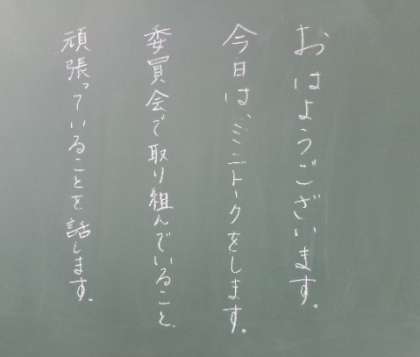 おはようございます。
今日は、ミニトークをします。
委員会で取り組んでいること、
頑張っていることを話します。